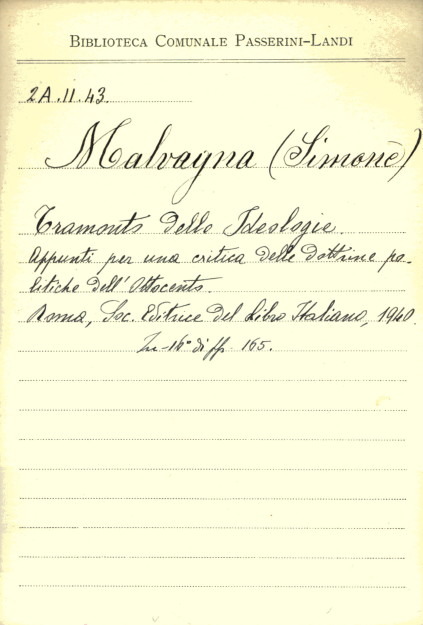 BIBLIOTECA COMUNALE PASSERINI-LANDI
2A.II.43.
Malvagna (Simone)
Tramonto delle Ideologie.
Appunti per una critica delle dottrine po-
litiche dell'Ottocento.
Roma, Soc. Editrice del Libro Italiano, 1940.
In-16° di pp. 165.